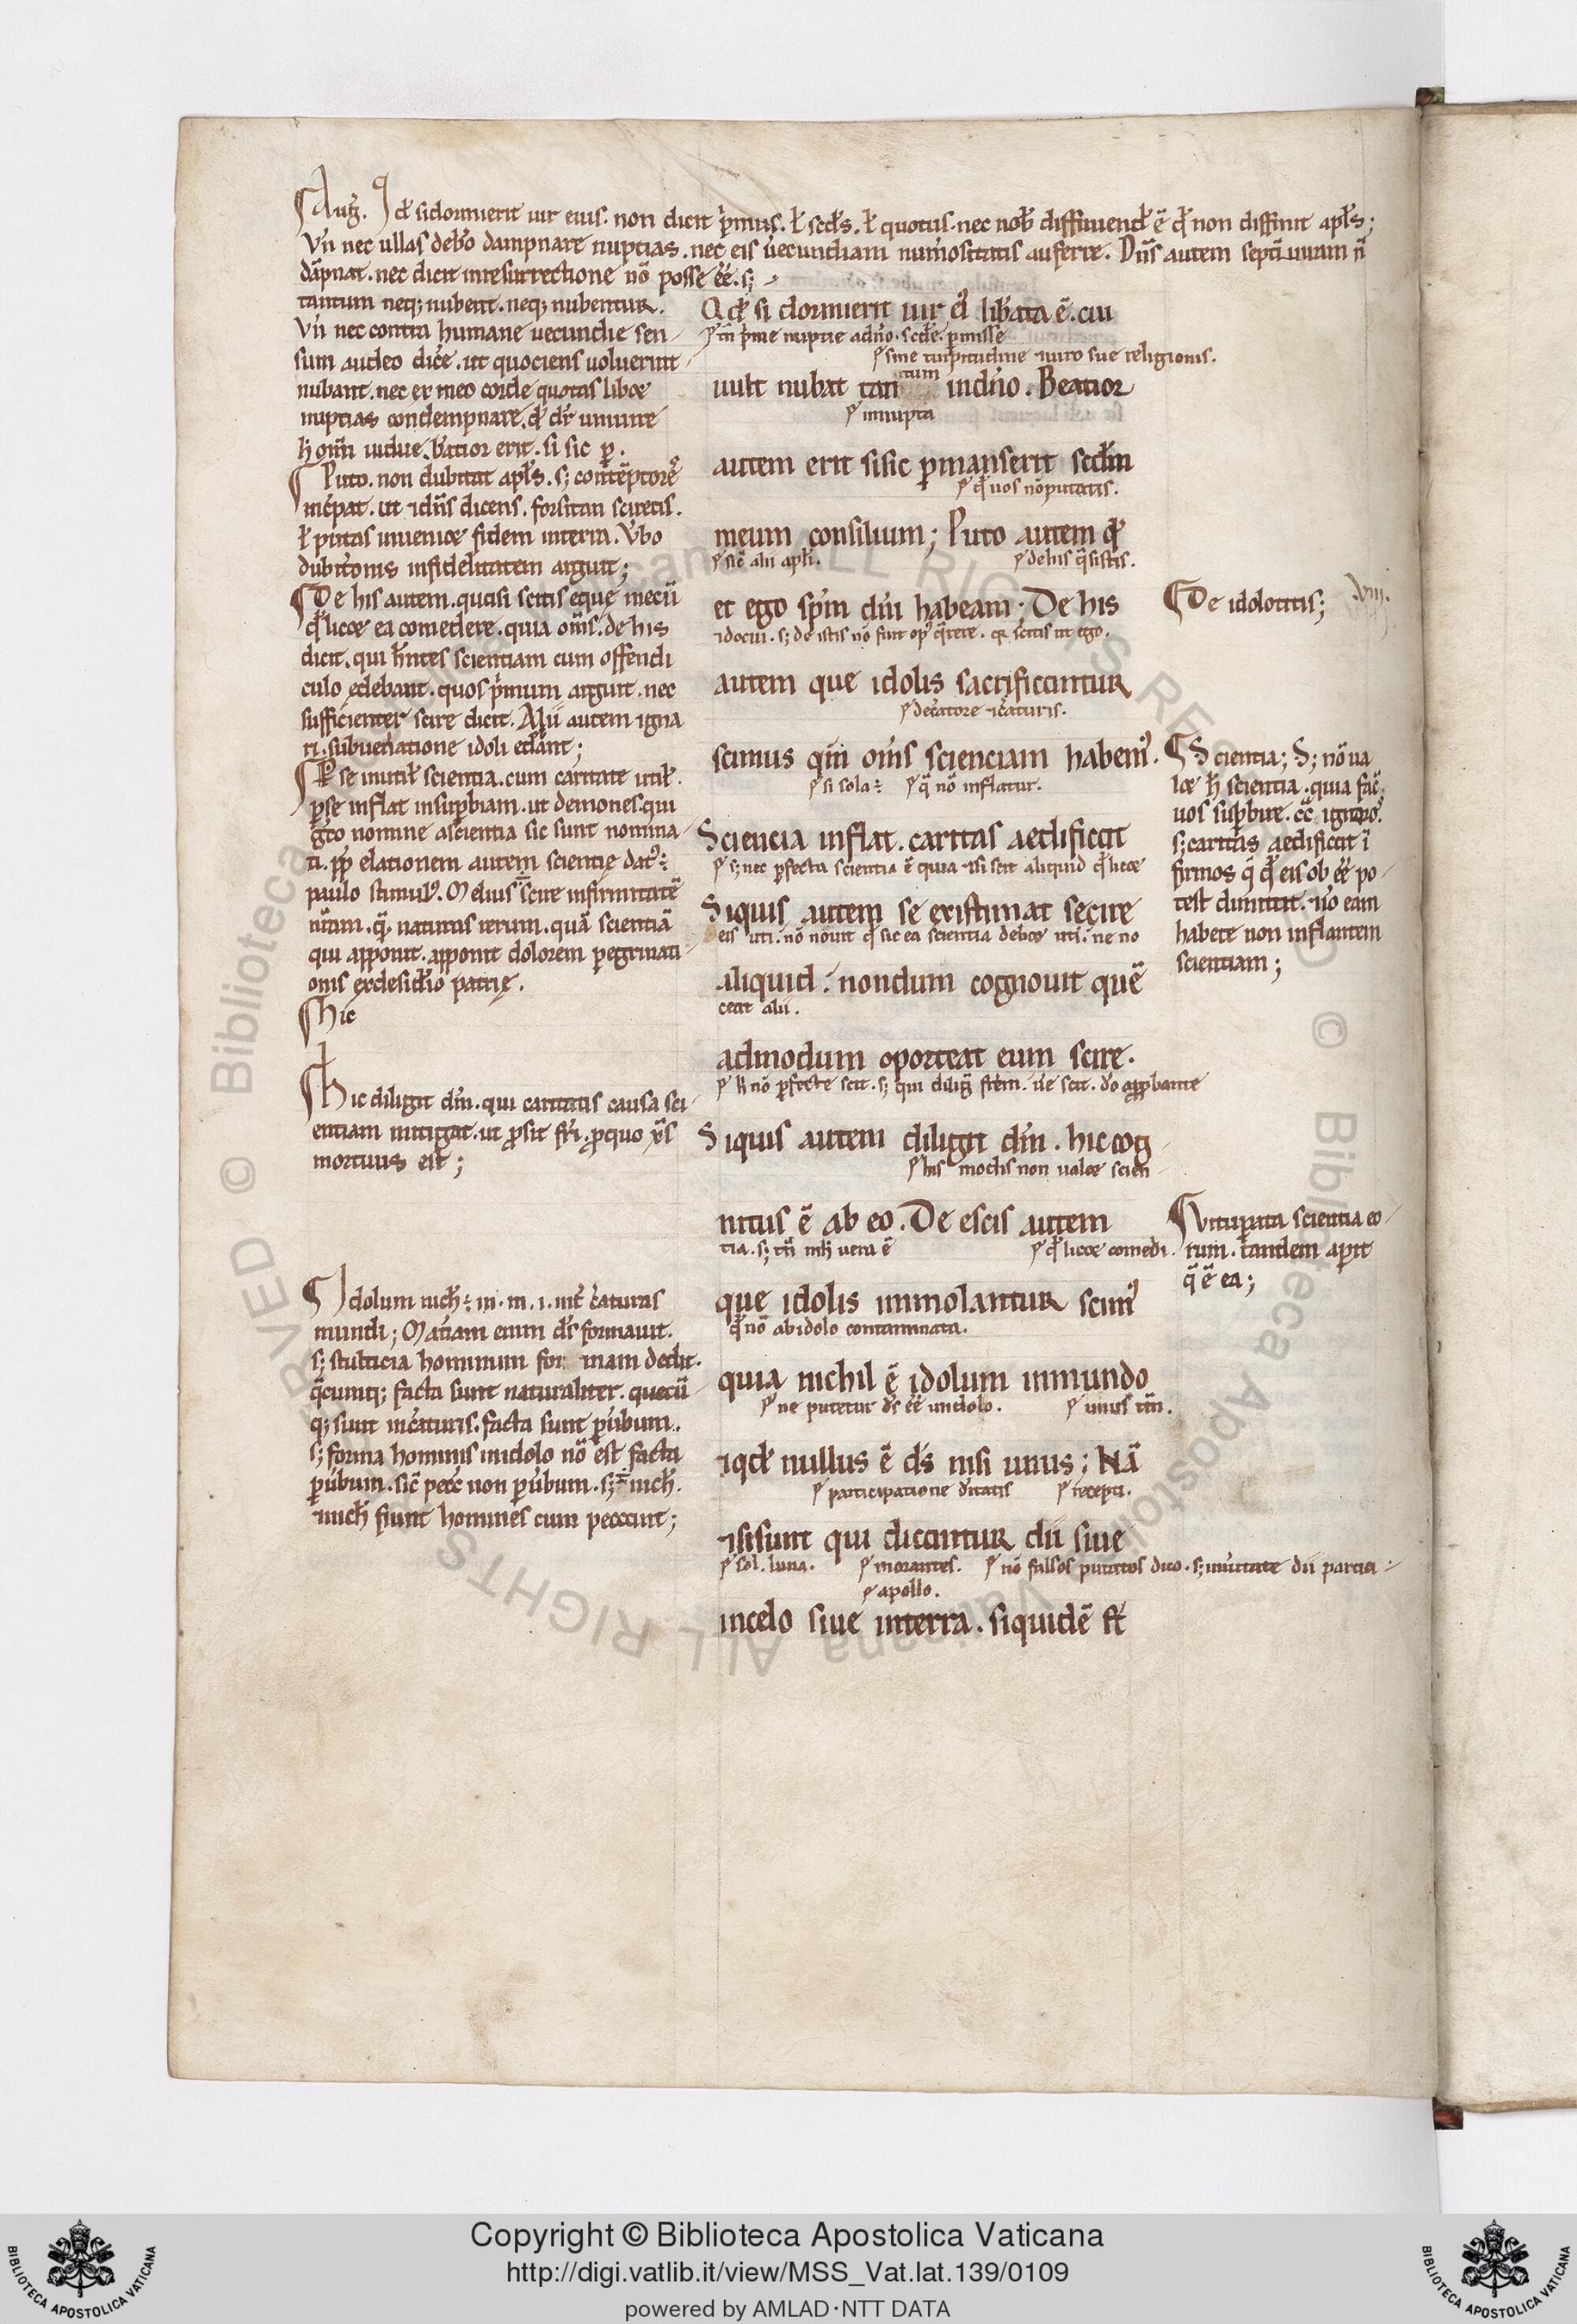 Aug. Qđ si dormierit uir eius. non dicit p̾mus. ł scđs. ł quotus. nec nob̄ diffiniend̄ ē qđ non diffinit apl's;
Vn̄ nec ullas debeo dampnare nuptias. nec eis uerecundiam num̄ositatis auferre. Dn̄s autem septē uiram n̄
dāpnat. nec dicit in resurrectione nō posse eē. s;
tantum neq; nubent. neq; nubentur.
Vn̄ nec contra humane uecundie sen-
sum audeo dic̄e. ut quociens uoluerint
nubant. nec ex meo corde quotas libet
nuptias condempnare. qđ dr̄ uniuire
h̄ om̄i uidue. b̄atior erit. si sic p̱.
Puto. non dubitat apl's. s; contēptorē
inc̄pat. ut ⁊ dn̄s dicens. forsitan sciretis.
ł putas inueniet fidem in terra. V̄bo
dubit̄onis infidelitatem arguit;
De his autem. quasi scitis eque mecū
qđ licet ea comedere. quia om̄s. de his
dicit. qui h̄ntes scientiam cum offendi
culo edebant. quos p̾mum arguit. nec
sufficienter scire dicit. Alii autem igna
ri. sub ueneratione idoli edebant;
Per se inutil' scientia. cum caritate util'.
p̱ se inflat in sup̱biam. ut demones. qui
greco nomine a scientia sic sunt nomina-
ti. pp̄ elationem autem scientie dat̾
paulo stimul̾. Melius ē scire infirmitatē
nr̄am. q̄ naturas rerum. quā scientiā
qui apponit. apponit dolorem p̱egrinati-
onis ex desid̄io patrie.
Hic
Hic diligit dm̄. qui caritatis causa sci-
entiam mitigat. ut p̱sit fr̄i. p̱ quo xp̄s
mortuus est;
Idolum nich' ē. in m. i. int̄ c̄aturas
mundi; Mat̄iam enim ds̄ formauit.
s; stulticia hominum for mam dedit.
q̄cumq; facta sunt naturaliter. quecū-
q; sunt in c̄aturis. facta sunt p̱ uerbum.
s; forma hominis in idolo nō est facta
p̱ uerbum. sic̄ pecc̄ non p̱ uerbum. s; ē nich'.
⁊ nich' fiunt homines cum peccant;
Qđ si dormierit uir ei̾ lib̄ata ē. cui
tn̄ p̾me nuptie a dn̄o. scđe p̱misse
sine turpitudine ⁊ uiro sue religionis.
uult nubat tantum in dn̄o. Beatior
innupta
autem erit si sic p̱manserit scđm
qđ uos nō putatis.
meum consilium; Puto autem qđ
sic̄ alii apl'i. de his q̄sistis.
et ego sp̄m dī habeam; De his
⁊ docui. s; de istis nō fuit op̾ q̄rere. q̾ scitis ut ego.
autem que idolis sacrificantur
de c̄atore ⁊ c̄aturis.
scimus qm̄ om̄s scienciam habem̾.
si sola ē q̄ nō inflatur.
Sciencia inflat. caritas aedificat
s; nec p̱fecta scientia ē quia ⁊si scit aliquid qđ licet
Siquis autem se existimat scire
eis uti. nō nouit qđ sic ea scientia debet uti. ne no
aliquid. nondum cognouit quē
ceat alii.
admodum oporteat eum scire.
Siquis autem diligit dm̄. hic cog-
his modis non ualet scien-
nitus ē ab eo. De escis autem
tia. s; tn̄ mh̄ uera ē qđ licet comedi.
que idolis immolantur scim̾
qđ nō ab idolo contaminata.
quia nichil ē idolum in mundo
ne putetur ds̄ eē in idolo. unus tn̄.
⁊ qđ nullus ē ds̄ nisi unus; Nā
participatione d̄itatis recepti.
⁊si sunt qui dicantur dii siue
sol. luna. morantes. nō falsos putatos dico. s; in ueritate dii partici-
apollo.
in celo siue in terra. siquidē st̄
De idolotitis; .viii.
Scientia; S; nō ua
let h̄ scientia. quia fac̄
uos sup̱bire. cc̄ ignaro̾.
s; caritas aedificat ī
firmos q̄ qđ eis ob eē po-
test dimittit. ⁊ uō eam
habete non inflantem
scientiam;
Vitup̱ata scientia eo-
rum. tandem ap̱it
q̄ ē ea;
Biblioteca Apostolica Vaticana ALL RIGHTS RESERVED ©
Copyright © Biblioteca Apostolica Vaticana
http://digi.vatlib.it/view/MSS_Vat.lat.139/0109
powered by AMLAD·NTT DATA
BIBLIOTECA APOSTOLICA VATICANA
BIBLIOTECA APOSTOLICA VATICANA